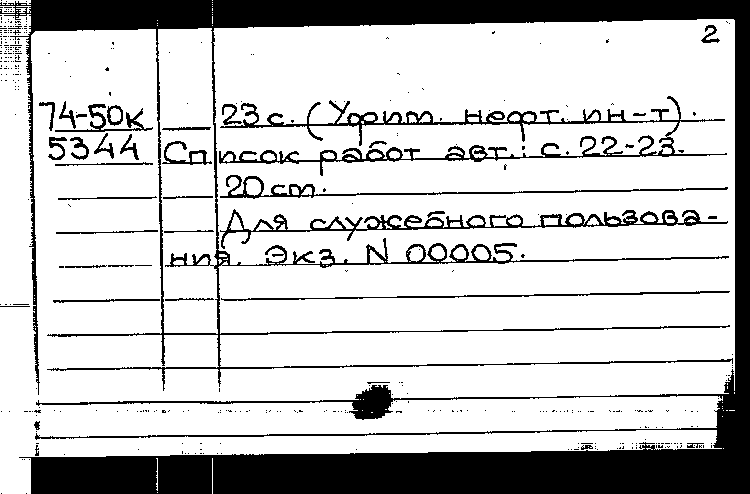 2
74-50к 23 с. (Уфим. нефт. ин-т).
5344 Список работ авт.: с. 22-23.
20 cm.
Для служебного пользова-
ния. Экз. N 00005.